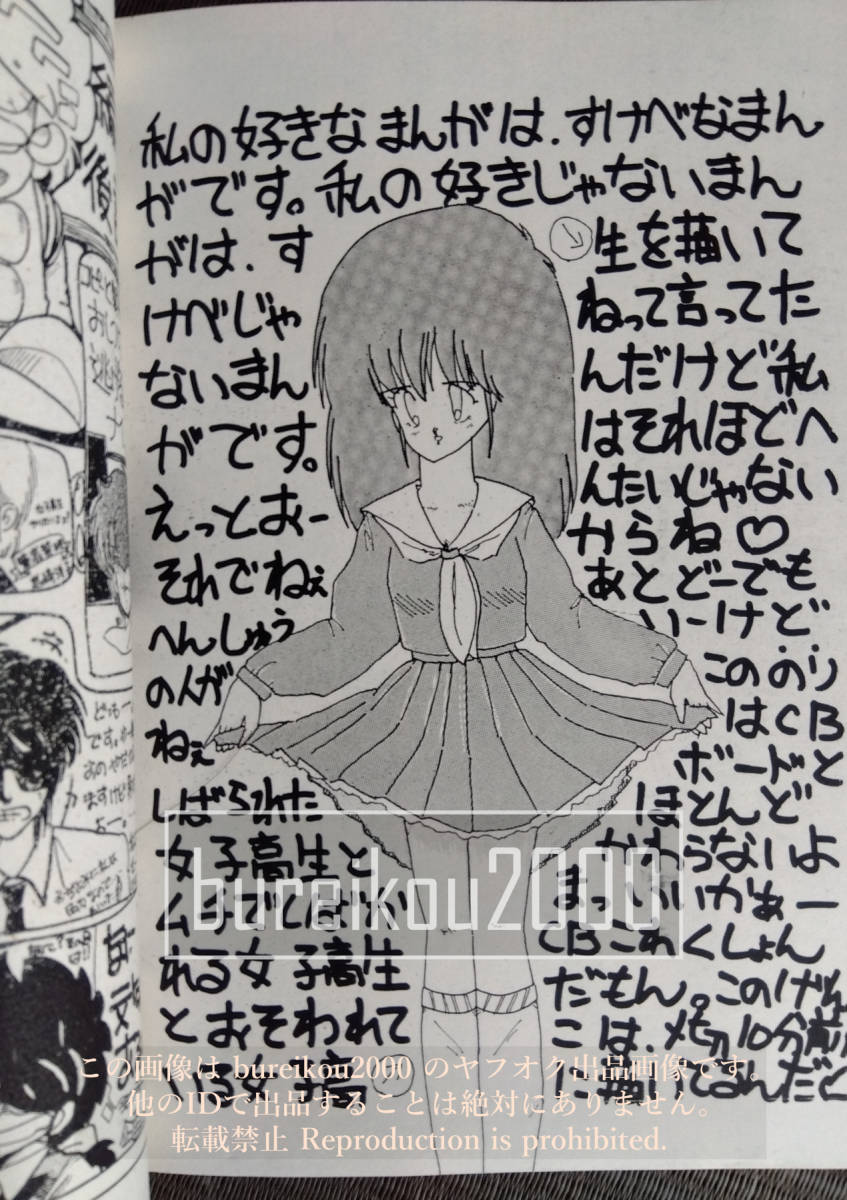 私の好きなまんがは、すけべなまん
がです。私の好きじゃないまん
がは、す
けべじゃ
ないまん
がです。
えっとおー
それでねぇ
へんしゅう
の人が
ねぇ
しばられた
女子高生と
ムチでしばか
れる女子高生
とおそわれて
いる女子高
生を描いて
ねって言ってた
んだけど私
はそれほどへ
んたいじゃない
からね♡
あとどーでも
いーけど
このノリ
はCB
ボードと
ほとんど
かわらないよ
まっいいかぁー
CBこれくしょん
だもん。このげん
こは、〆切10分前
に描いてるんだ
bureikou2000
この画像は bureikou2000 のヤフオク出品画像です。
他のIDで出品することは絶対にありません。
転載禁止 Reproduction is prohibited.